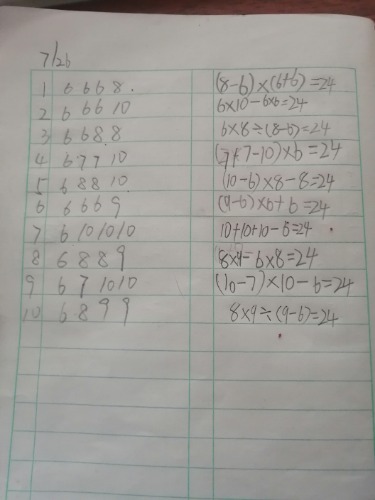 7/26
1 6 6 6 8. (8-6)×(6+6)=24
2 6 6 6 10 6×10-6×6=24
3 6 6 8 8 6×8÷(8-6)=24
4 6 7 7 10 (7+7-10)×6=24
5 6 8 8 10 (10-6)×8-8=24
6 6 6 6 9 (9-6)×6+6=24
7 6 10 10 10 10+10+10-6=24
8 6 8 8 9 8×9-6×8=24
9 6 7 10 10 (10-7)×10-6=24
10 6 8 9 9 8×9÷(9-6)=24